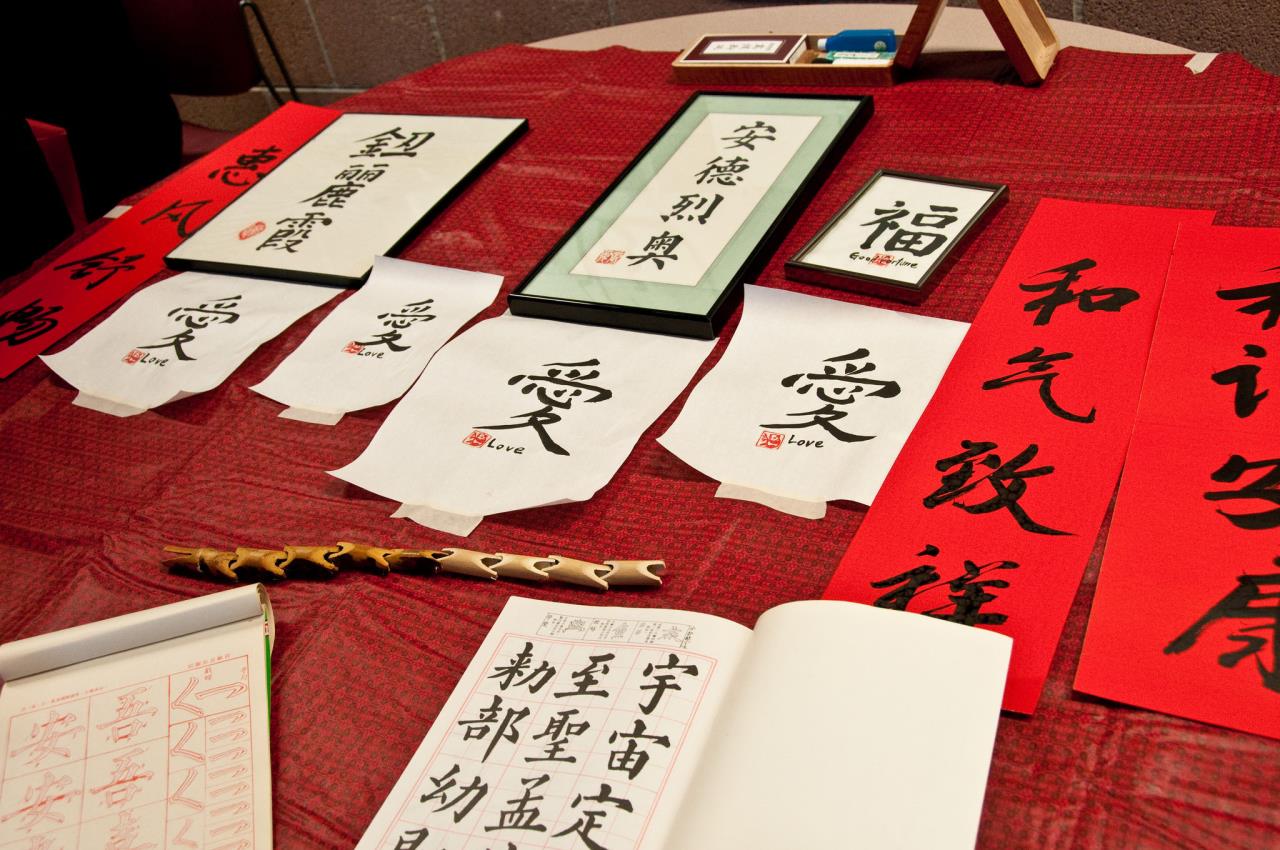 惠风舒畅
鈕麗霞
安德烈奥
福
Good Fortune
愛
Love
愛
Love
愛
Love
愛
Love
和气致祥
安康
宇宙定
至聖孟
勅部幼
吾吾
安安